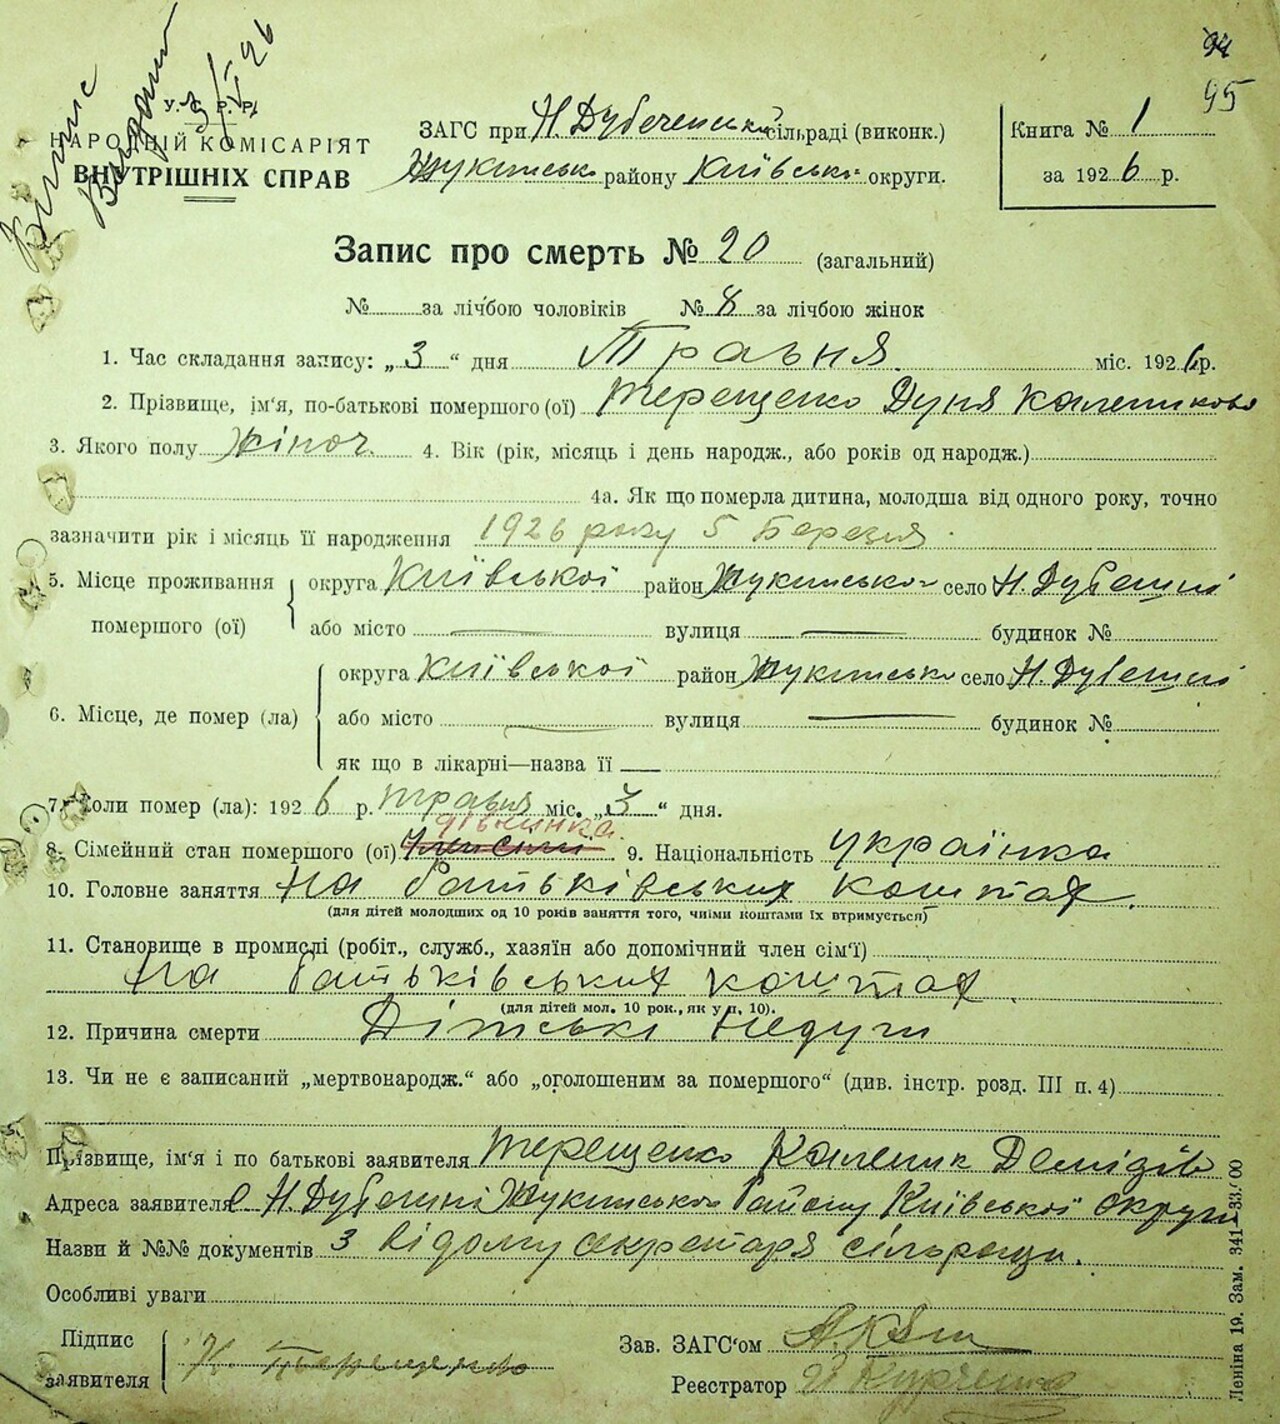 94
95
Виписа
Видана
3/V 26
У. С. Р. Р.
НАРОДНІЙ КОМІСАРІЯТ
ВНУТРІШНІХ СПРАВ
ЗАГС при Н. Дубеченській сільраді (виконк.)
району Київської округи.
Книга № 1
за 1926 р.
Запис про смерть № 20 (загальний)
№ за лічбою чоловіків № 8 за лічбою жінок
1. Час складання запису: „3“ дня Травня міс. 1926 р.
2. Прізвище, ім‘я, по-батькові помершого (ої) Терещенко Дуня Калеников
3. Якого полу жіноч. 4. Вік (рік, місяць і день народж., або років од народж.)
4а. Як що померла дитина, молодша від одного року, точно
зазначити рік і місяць її народження 1926 року 5 Березня
5. Місце проживання помершого (ої) округа Київської район село Н. Дубешні
або місто — вулиця — будинок №
6. Місце, де помер (ла) округа Київської район село Н. Дубешні
або місто — вулиця — будинок №
як що в лікарні—назва її —
7. Коли помер (ла): 1926 р. травня міс. „3“ дня.
дівчинка
8. Сімейний стан помершого (ої) 9. Національність українка
10. Головне заняття На батьківських коштах.
(для дітей молодших од 10 років заняття того, чиїми коштами їх втримується)
11. Становище в промислі (робіт., служб., хазяїн або допомічний член сім‘ї)
На батьківських коштах.
(для дітей мол. 10 рок., як у п. 10).
12. Причина смерти Дітські недуги
13. Чи не є записаний „мертвонародж.“ або „оголошеним за помершого“ (див. інстр. розд. III п. 4)
Прізвище, ім‘я і по батькові заявителя Терещенко Каленик Демідів
Адреса заявителя с. Н. Дубешні Району Київської округи
Назви й №№ документів З відому секретаря сільради.
Особливі уваги
Підпис заявителя К. Терещенко
Зав. ЗАГС‘ом
Реєстратор
Леніна 19. Зам. 341—33/00